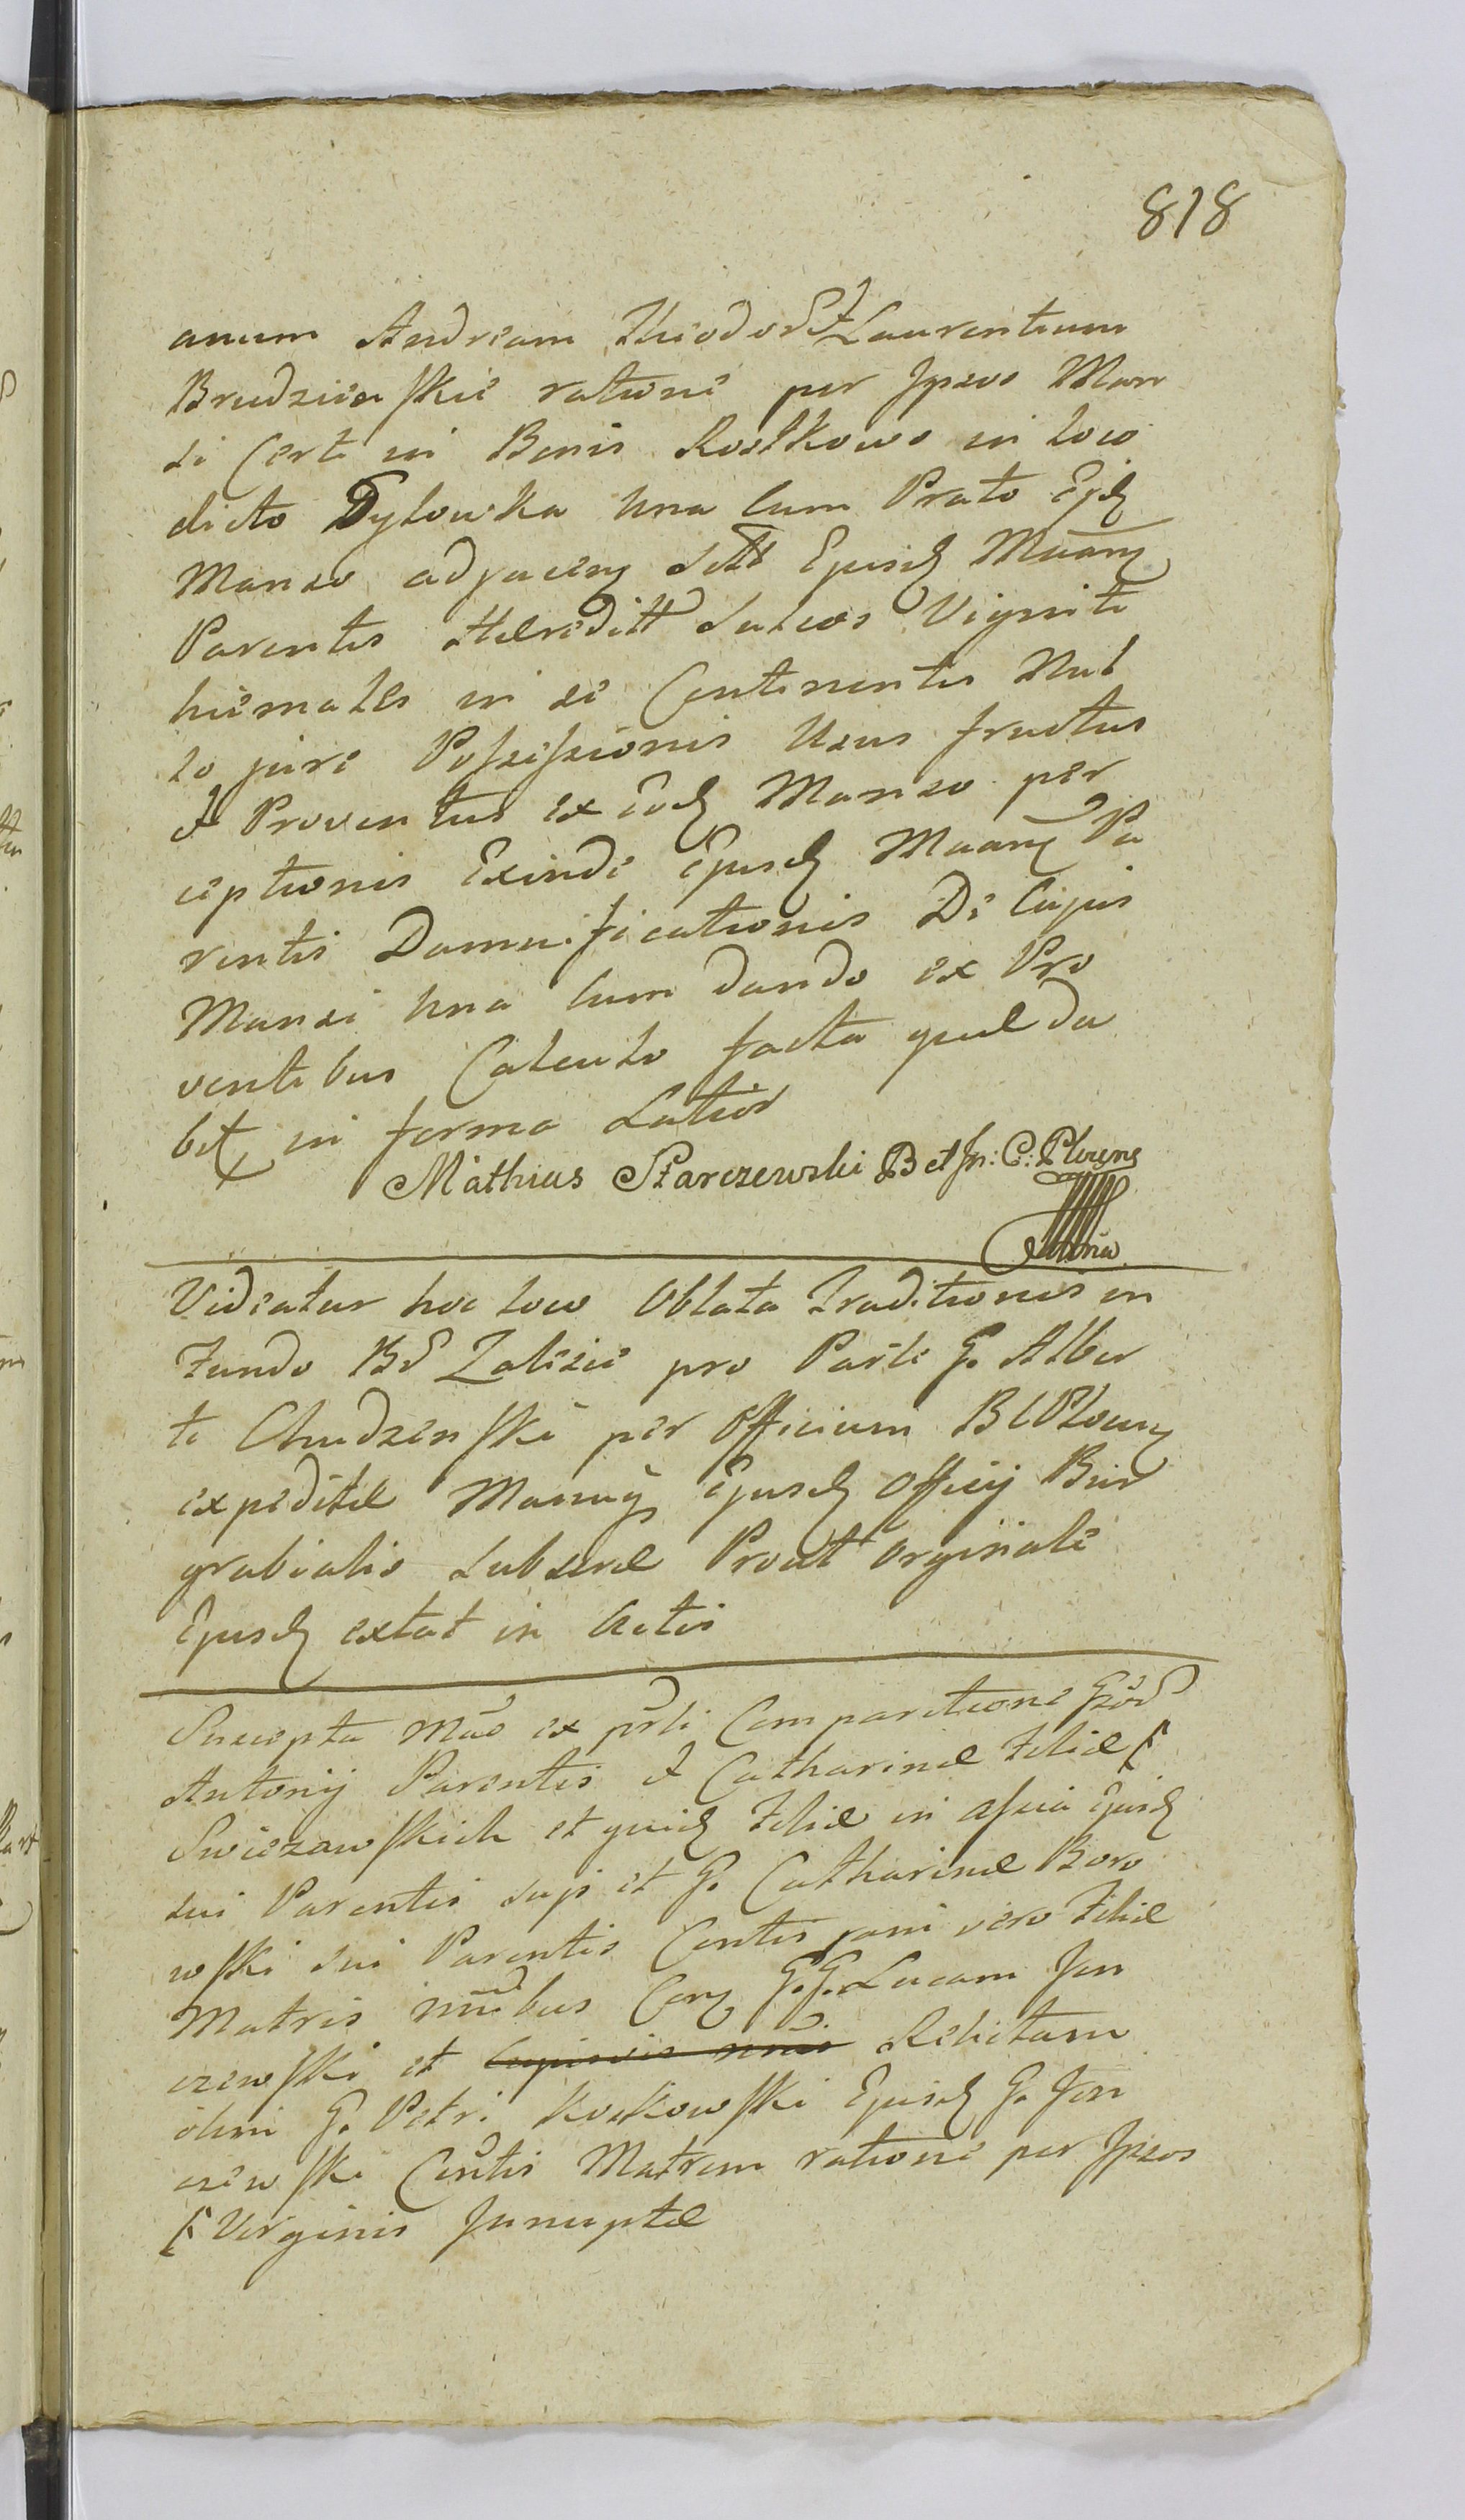 818
anum Andream Theodor et Laurentium
Brudzieńskie ratione per Ipsos Man
si Certi in Bonis Rostkowo in loco
dicto Dylowka una cum Prato Ejd
Manso adjacen Sitt Ejusd Mãnq
Parentis Hæreditt Sulcos Viginti
hiemales in se Continentis Nul
lo jure Possessionis Usus fructus
et Proventus ex Eod Manso per
ceptionis Exinde Ejusd Mãnq Pa
rentis Damnificationis De Cujus
Mansi una cum dando ex Pro
ventibus Calculo facta quæ da
bit in forma Latior
Mathias Starczewski B et Jn: C: Plocens
mia
Videatur hoc loco Oblata Traditionis in
Fundo Bd Zalesie pro Parte G. Alber
ti Chudzenski per Officium B C Plocens
expeditæ Manuq Ejusd Officij Bur
grabialis Subscræ Prout Originale
Ejusd extat in Actis
Suscepta ex Comparitione
Antonij Parentis et Catharinæ Filiæ
Swiezawskich et quid Filiæ in assia Ejusd
sui Parentis et G. Catharinæ Boro
wski sui Parentis Contis pani vero Filiæ
Matris Con G.G. Lucam Jan
czewski et Relictam
olim G. Petri Koskowski Ejusd G. Jan
czewski Contis Matrem ratione per Ipsos
Virginis Innuptæ